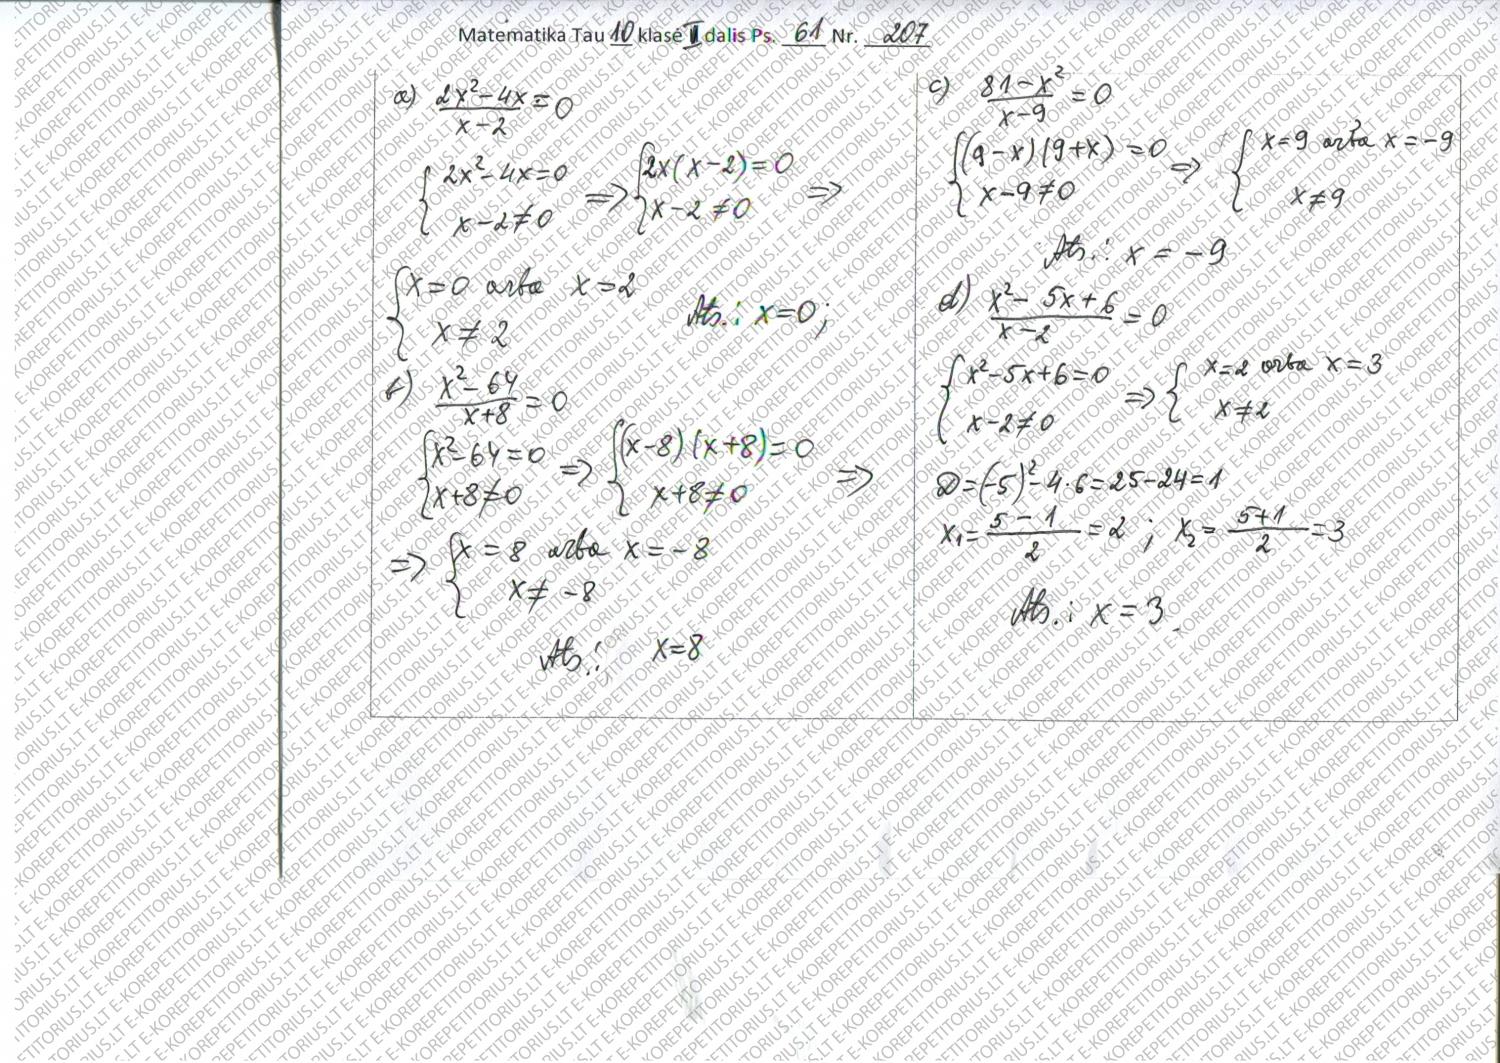 Matematika Tau 10 klasė II dalis Ps. 61 Nr. 207
a) (2x²-4x)/(x-2) = 0
{2x²-4x=0
x-2≠0 => {2x(x-2)=0
x-2≠0 =>
{x=0 arba x=2
x≠2
Ats.: x=0;
b) (x²-64)/(x+8) = 0
{x²-64=0
x+8≠0 => {(x-8)(x+8)=0
x+8≠0 =>
=> {x=8 arba x=-8
x≠-8
Ats.: x=8
c) (81-x²)/(x-9) = 0
{(9-x)(9+x)=0
x-9≠0 => {x=9 arba x=-9
x≠9
Ats.: x=-9
d) (x²-5x+6)/(x-2) = 0
{x²-5x+6=0
x-2≠0 => {x=2 arba x=3
x≠2
D=(-5)²-4·6=25-24=1
x₁=(5-1)/2=2; x₂=(5+1)/2=3
Ats.: x=3
E-KOREPETITORIUS.LT